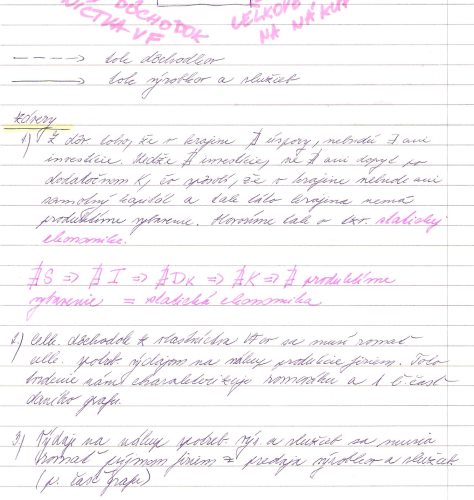 DÔCHODOK
VLASTNÍCTVA VF
CELKOVÉ
NA NÁKUP
tok dôchodkov
tok výrobkov a služieb
Závery
1) Z dôv. toho, že v krajine ∄ úspory, nebudú ∃ ani
investície. Keďže ∄ investície, ne ∃ ani dopyt po
dodatočnom K, čo spôsobí, že v krajine nebude ani
samotný kapitál a teda táto krajina nemá
produktívne vybavenie. Hovoríme teda o tzv. statickej
ekonomike.
∄ S ⇒ ∄ I ⇒ ∄ DK ⇒ ∄ K ⇒ ∄ produktívne
vybavenie = statická ekonomika
2) Celk. dôchodok z vlastníctva VF sa musí rovnať
celk. potreb. výdajom na nákup produkcie firiem. Toto
tvrdenie nám charakterizuje rovnováhu a ľ. časť
daného grafu.
3) Výdaje na nákup potreb. výr. a služieb sa musia
rovnať príjmom firiem z predaja výrobkov a služieb
(p. časť grafu)